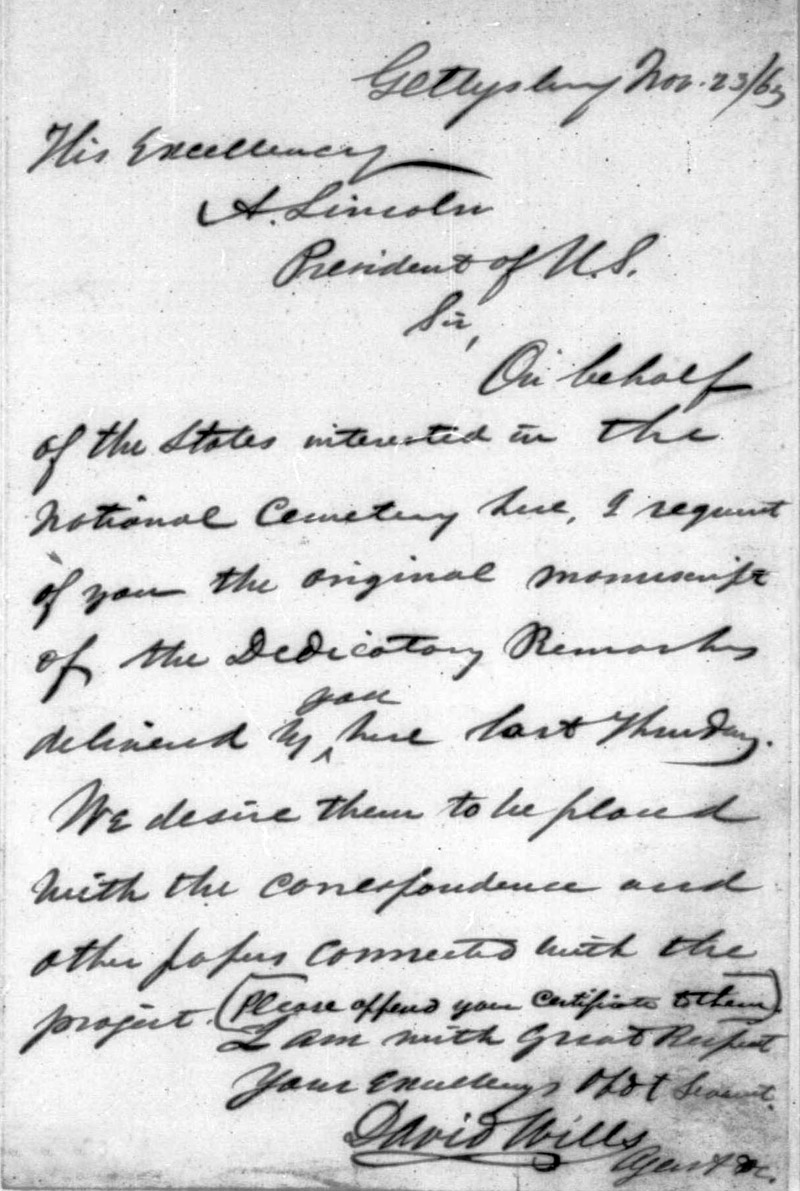 Gettysburg Nov. 23/63
His Excellency
A. Lincoln
President of U.S.
Sir,
On behalf
of the States interested in the
National Cemetery here, I request
of you the original manuscript
of the Dedicatory Remarks
you
delivered by ‸ here last Thursday.
We desire them to be placed
with the correspondence and
other papers connected with the
project. (Please append your Certificate to them)
I am with Great Respect
Your Excellencys Obdt Servant.
David Wills
Agent &c.